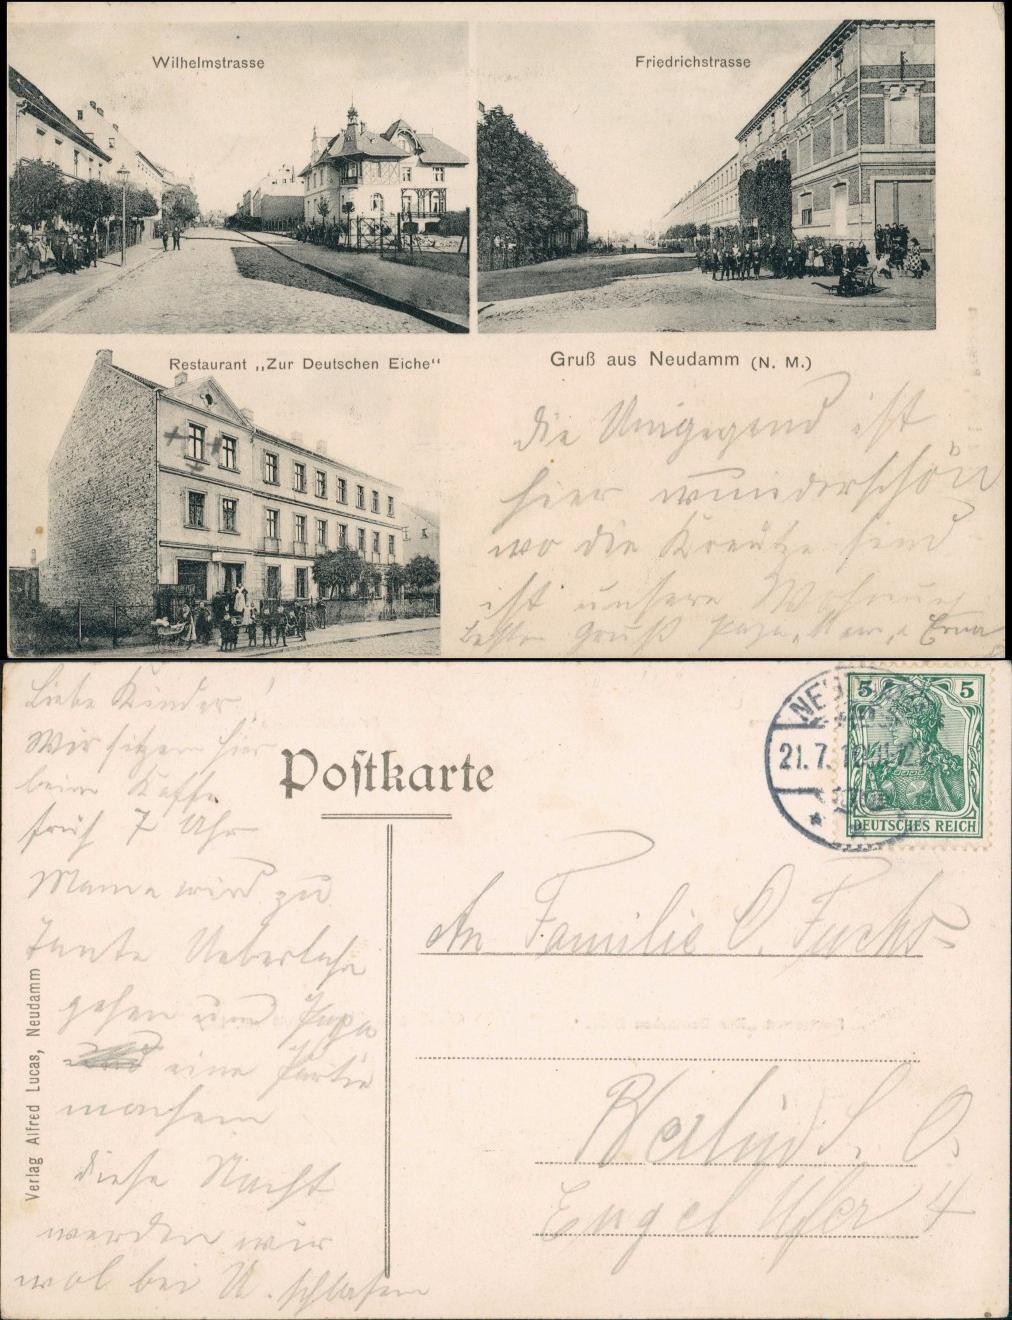 Wilhelmstrasse
Friedrichstrasse
Restaurant „Zur Deutschen Eiche“
Gruß aus Neudamm (N. M.)
die Umgegend ist
hier wunderschön
wo die Kreutze sind
ist unsere Wohnung
Besten Gruß Papa, Mam, u Erna
Liebe Kinder!
Wir sitzen hier
beim Kaffe
früh 7 Uhr
Mama wird zu
Tante Ueberlahn
gehen und Papa
eine Partie
machen
diese Nacht
werden wir
wol bei U. schlafen
Postkarte
Verlag Alfred Lucas, Neudamm
21.7.12
5 5
DEUTSCHES REICH
An Familie O. Fuchs
S. O.
Engel Ufer 4